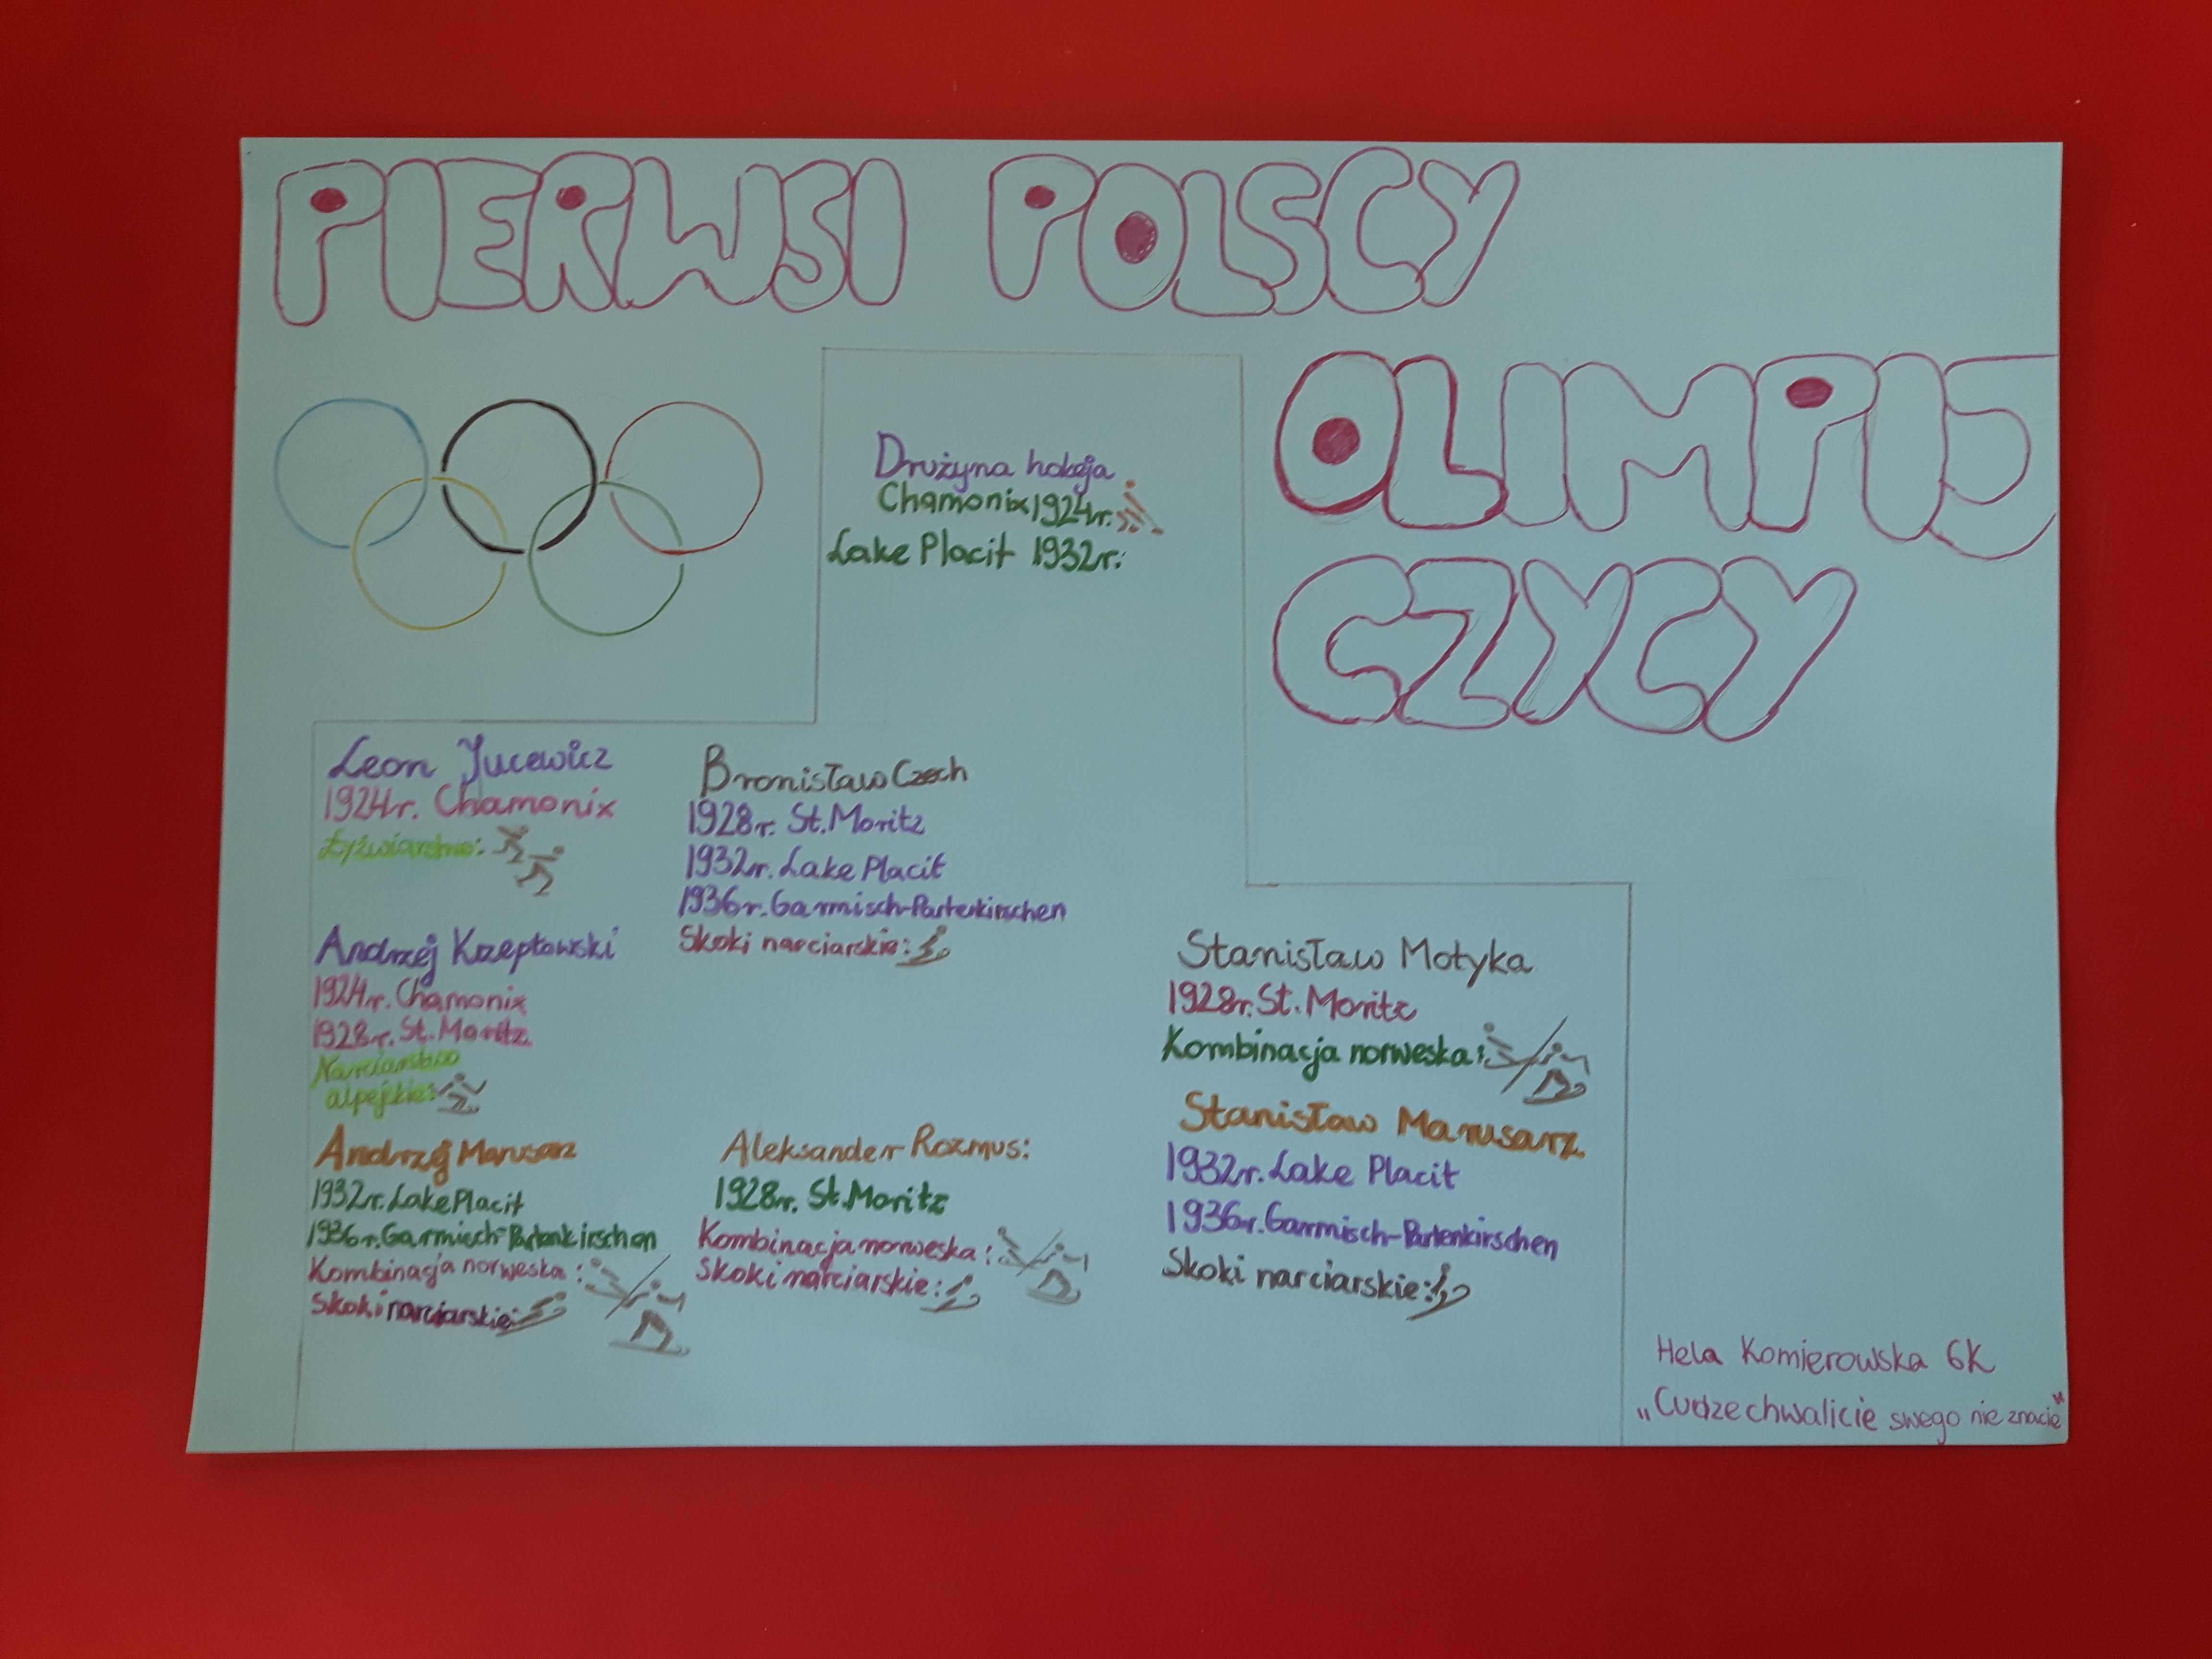 PIERWSI POLSCY
OLIMPIJ
CZYCY
Drużyna hokeja
Chamonix 1924r.
Lake Placit 1932r.
Leon Jucewicz
1924r. Chamonix
Łyżwiarstwo:
Andrzej Krzeptowski
1924r. Chamonix
1928r. St. Moritz
Narciarstwo
alpejskie:
Andrzej Marusarz
1932r. Lake Placit
1936r. Garmisch-Partenkirschen
Kombinacja norweska:
Skoki narciarskie:
Bronisław Czech
1928r. St. Moritz
1932r. Lake Placit
1936r. Garmisch-Partenkirschen
Skoki narciarskie:
Aleksander Rozmus:
1928r. St. Moritz
Kombinacja norweska:
Skoki narciarskie:
Stanisław Motyka
1928r. St. Moritz
Kombinacja norweska:
Stanisław Marusarz
1932r. Lake Placit
1936r. Garmisch-Partenkirschen
Skoki narciarskie:
Hela Komierowska 6K
„Cudze chwalicie swego nie znacie"